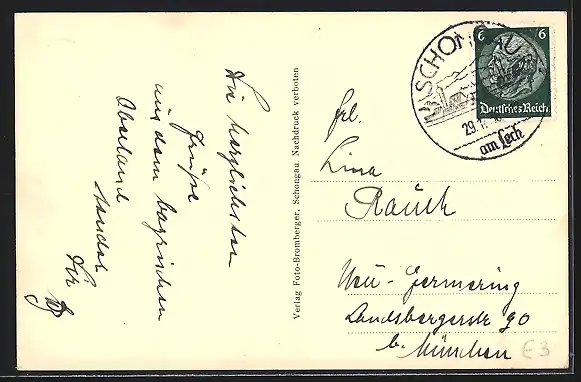 Die herzlichsten
Grüße
aus dem bayrischen
Oberland
sendet
Dir
Verlag Foto-Bromberger, Schongau Nachdruck verboten
SCHONGAU
am Lech
29.
6 6
Deutsches Reich
Frl.
Lina
Rauch
Neu-Germering
Landsbergerstr 90
b. München
E3